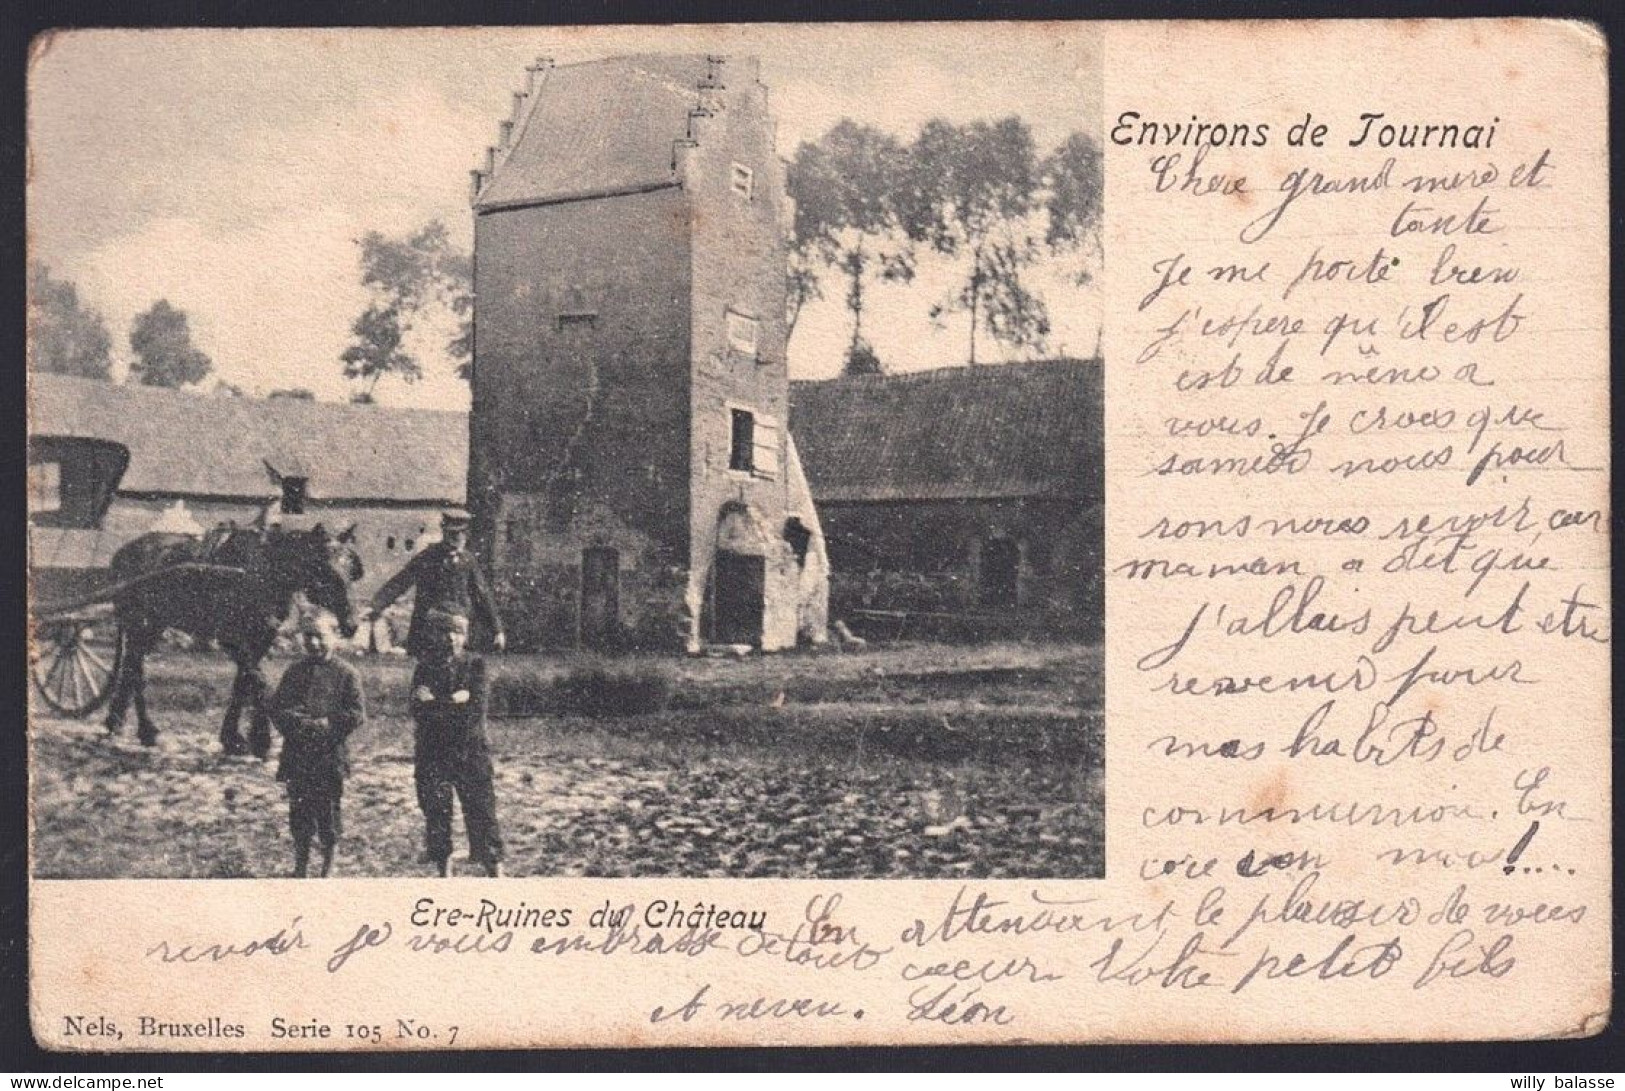 Environs de Tournai
Chere grand mere et
tante
Je me porte bien
j'espere qu'il est
est de même a
vous. Je crois que
samedi nous pour
rons nous revoir, car
maman a dit que
j'allais peut etre
revenir pour
mes habits de
communion. En
core un mois!....
En attendant le plaisir de vous
revoir je vous embrasse de tout coeur. Votre petit fils
et neveu. Léon
Ere-Ruines du Château
Nels, Bruxelles Serie 105 No. 7
willy balasse